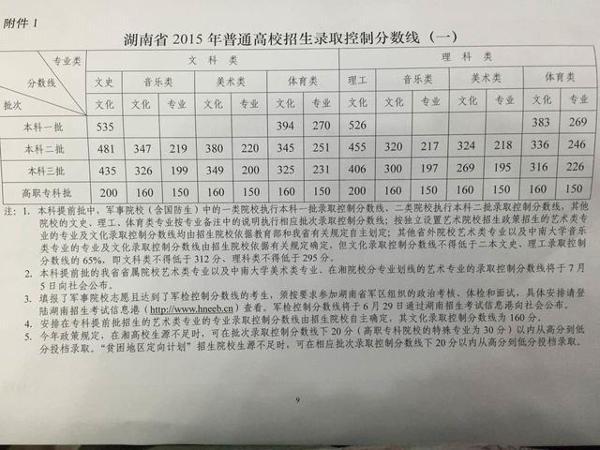 附件 1
湖南省 2015 年普通高校招生录取控制分数线（一）
专业类 文 科 类 理 科 类
分数线 文史 音乐类 美术类 体育类 理工 音乐类 美术类 体育类
批次 文化 文化 专业 文化 专业 文化 专业 文化 文化 专业 文化 专业 文化 专业
本科一批 535 394 270 526 383 269
本科二批 481 347 219 380 220 345 251 455 320 217 324 218 336 246
本科三批 435 326 199 349 200 325 231 406 300 197 269 195 316 226
高职专科批 200 160 150 160 150 160 150 200 160 150 160 150 160 150
注：1. 本科提前批中，军事院校（含国防生）中的一类院校执行本科一批录取控制分数线、二类院校执行本科二批录取控制分数线，其他
院校的文史、理工、体育类专业按专业备注中的说明执行相应批次录取控制分数线；按独立设置艺术院校招生政策招生的艺术类专
业的专业及文化录取控制分数线均由招生院校依据教育部和我省有关规定自主划定；其他省外院校艺术类专业以及中南大学音乐
类专业的专业及文化录取控制分数线由招生院校依据有关规定确定，但文化录取控制分数线不得低于二本文史、理工录取控制
分数线的 65%，即文科类不得低于 312 分、理科类不得低于 295 分。
2. 本科提前批的我省省属院校艺术类专业以及中南大学美术类专业、在湘院校分专业划线的艺术专业的录取控制分数线将于 7 月
5 日向社会公布。
3. 填报了军事院校志愿且达到了军检控制分数线的考生，须按要求参加湖南省军区组织的政治考核、体检和面试，具体安排请登
陆湖南招生考试信息港（http://www.hneeb.cn）查看。军检控制分数线将于 6 月 29 日通过湖南招生考试信息港向社会公布。
4. 安排在专科提前批招生的艺术类专业的专业录取控制分数线由招生院校自主确定，其文化录取控制分数线为 160 分。
5. 今年政策规定，在湘高校生源不足时，可在批次录取控制分数线下 20 分（高职专科院校的特殊专业为 30 分）以内从高分到低
分投档录取。“贫困地区定向计划”招生院校生源不足时，可在相应批次录取控制分数线下 20 分以内从高分到低分投档录取。
9